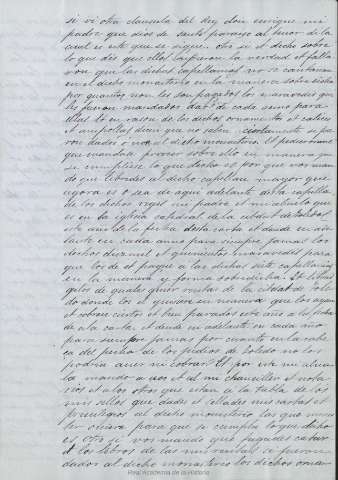 si vi otra clausula del Rey don enrique mi
padre que dios de santo parayso al tenor de la
cual es este que se sigue. otro si el dicho sobre
lo que dis que ellos supieron la verdad et falla
ron que las dichas capellanias no se cantaban
en el dicho monasterio en la manera sobredicha
por quanto non les son pagados los maravedis que
les fueron mandados dar de cada anno para
ellas et en rason de los dichos ornamentos et calices
et ampollas disen que no saben ciertamente si fue
ron dados o non al dicho monasterio. Et pedieronme
que mandase proveer sobre ello en manera que
se cumpliese lo que dicho es por que vos man
do que libredes al dicho capellan mayor que
agora es o sea de aqui adelante de la capilla
de los dichos reyes mi padre et mi abuelo que
es en la iglesia catedral de la cibdat de Toledo
este anno de la fecha desta carta et dende en ade
lante en cada anno para siempre jamas los
dichos dos mil et quinientos maravedis para
que los de et pague a las dichas siete capellanias
en la manera et forma sobredicha. Et libra
gelos de qualesquier rentas de la cibdat de Tole
do donde los el quisiere en manera que los ayan
et sobren ciertos et bien parados este año de la fecha
de la carta et dende en adelante en cada año
para siempre jamas por cuanto en la cabe
ça del pecho de los judios de Toledo no los
podria aver ni cobrar. Et por esta mi alva
la mando a vos et al mi chanceller et nota
rios et a los otros que estan a la tabla de los
mis sellos que dades et selledes mis cartas et
previlegios al dicho monasterio las que menes
ter oviere para que se cumpla lo que dicho
es otro si vos mando que fagades catar
et los libros de las mis rentas si fueron
dados al dicho monasterio los dichos orna-
Real Academia de la Historia